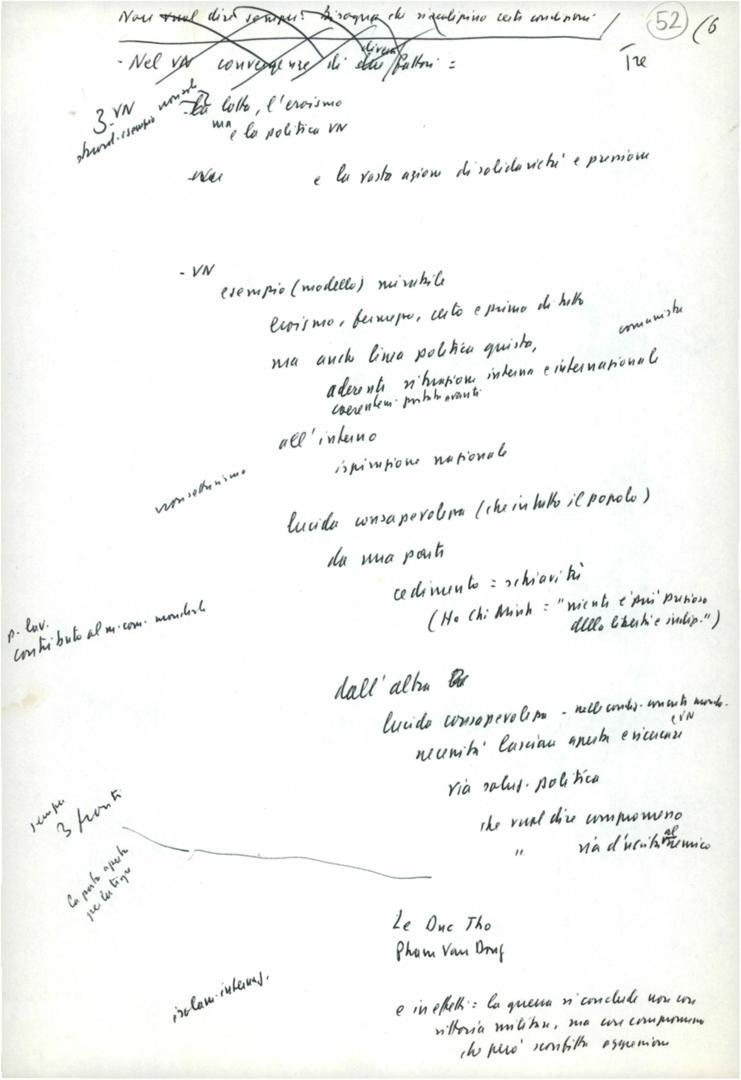 Non vuol dire sempre: bisogna che si realizzino certe condizioni
52
(6
- Nel VN convergenze di due fattori =
diversi
Tre
3. VN
- la lotta, l'eroismo
ma
e la politica VN
e la vasta azione di solidarietà e pressione
- VN
esempio (modello) mirabile
eroismo, fermezza, certo e prima di tutto
ma anche linea politica giusta,
comunista
aderente situazione interna e internazionale
coerentem. portata avanti
all'interno
ispirazione nazionale
non settarismo
lucida consapevolezza (che in tutto il popolo)
da una parte
cedimento = schiavitù
(Ho Chi Minh = "niente è più prezioso
della libertà e indip.")
p. lav.
contributo al m. com. mondiale
dall'altra
lucida consapevolezza - nelle condiz. concrete mondo.
e VN
necessità lasciare aperta e ricercare
via soluz. politica
che vuol dire compromesso
" via d'uscita al nemico
sempre
3 fronti
la porta aperta
per la tigre
Le Duc Tho
Pham Van Dong
isolam. internaz.
e in effetti = la guerra si conclude non con
vittoria militare, ma con compromesso
che però sconfitta aggressione